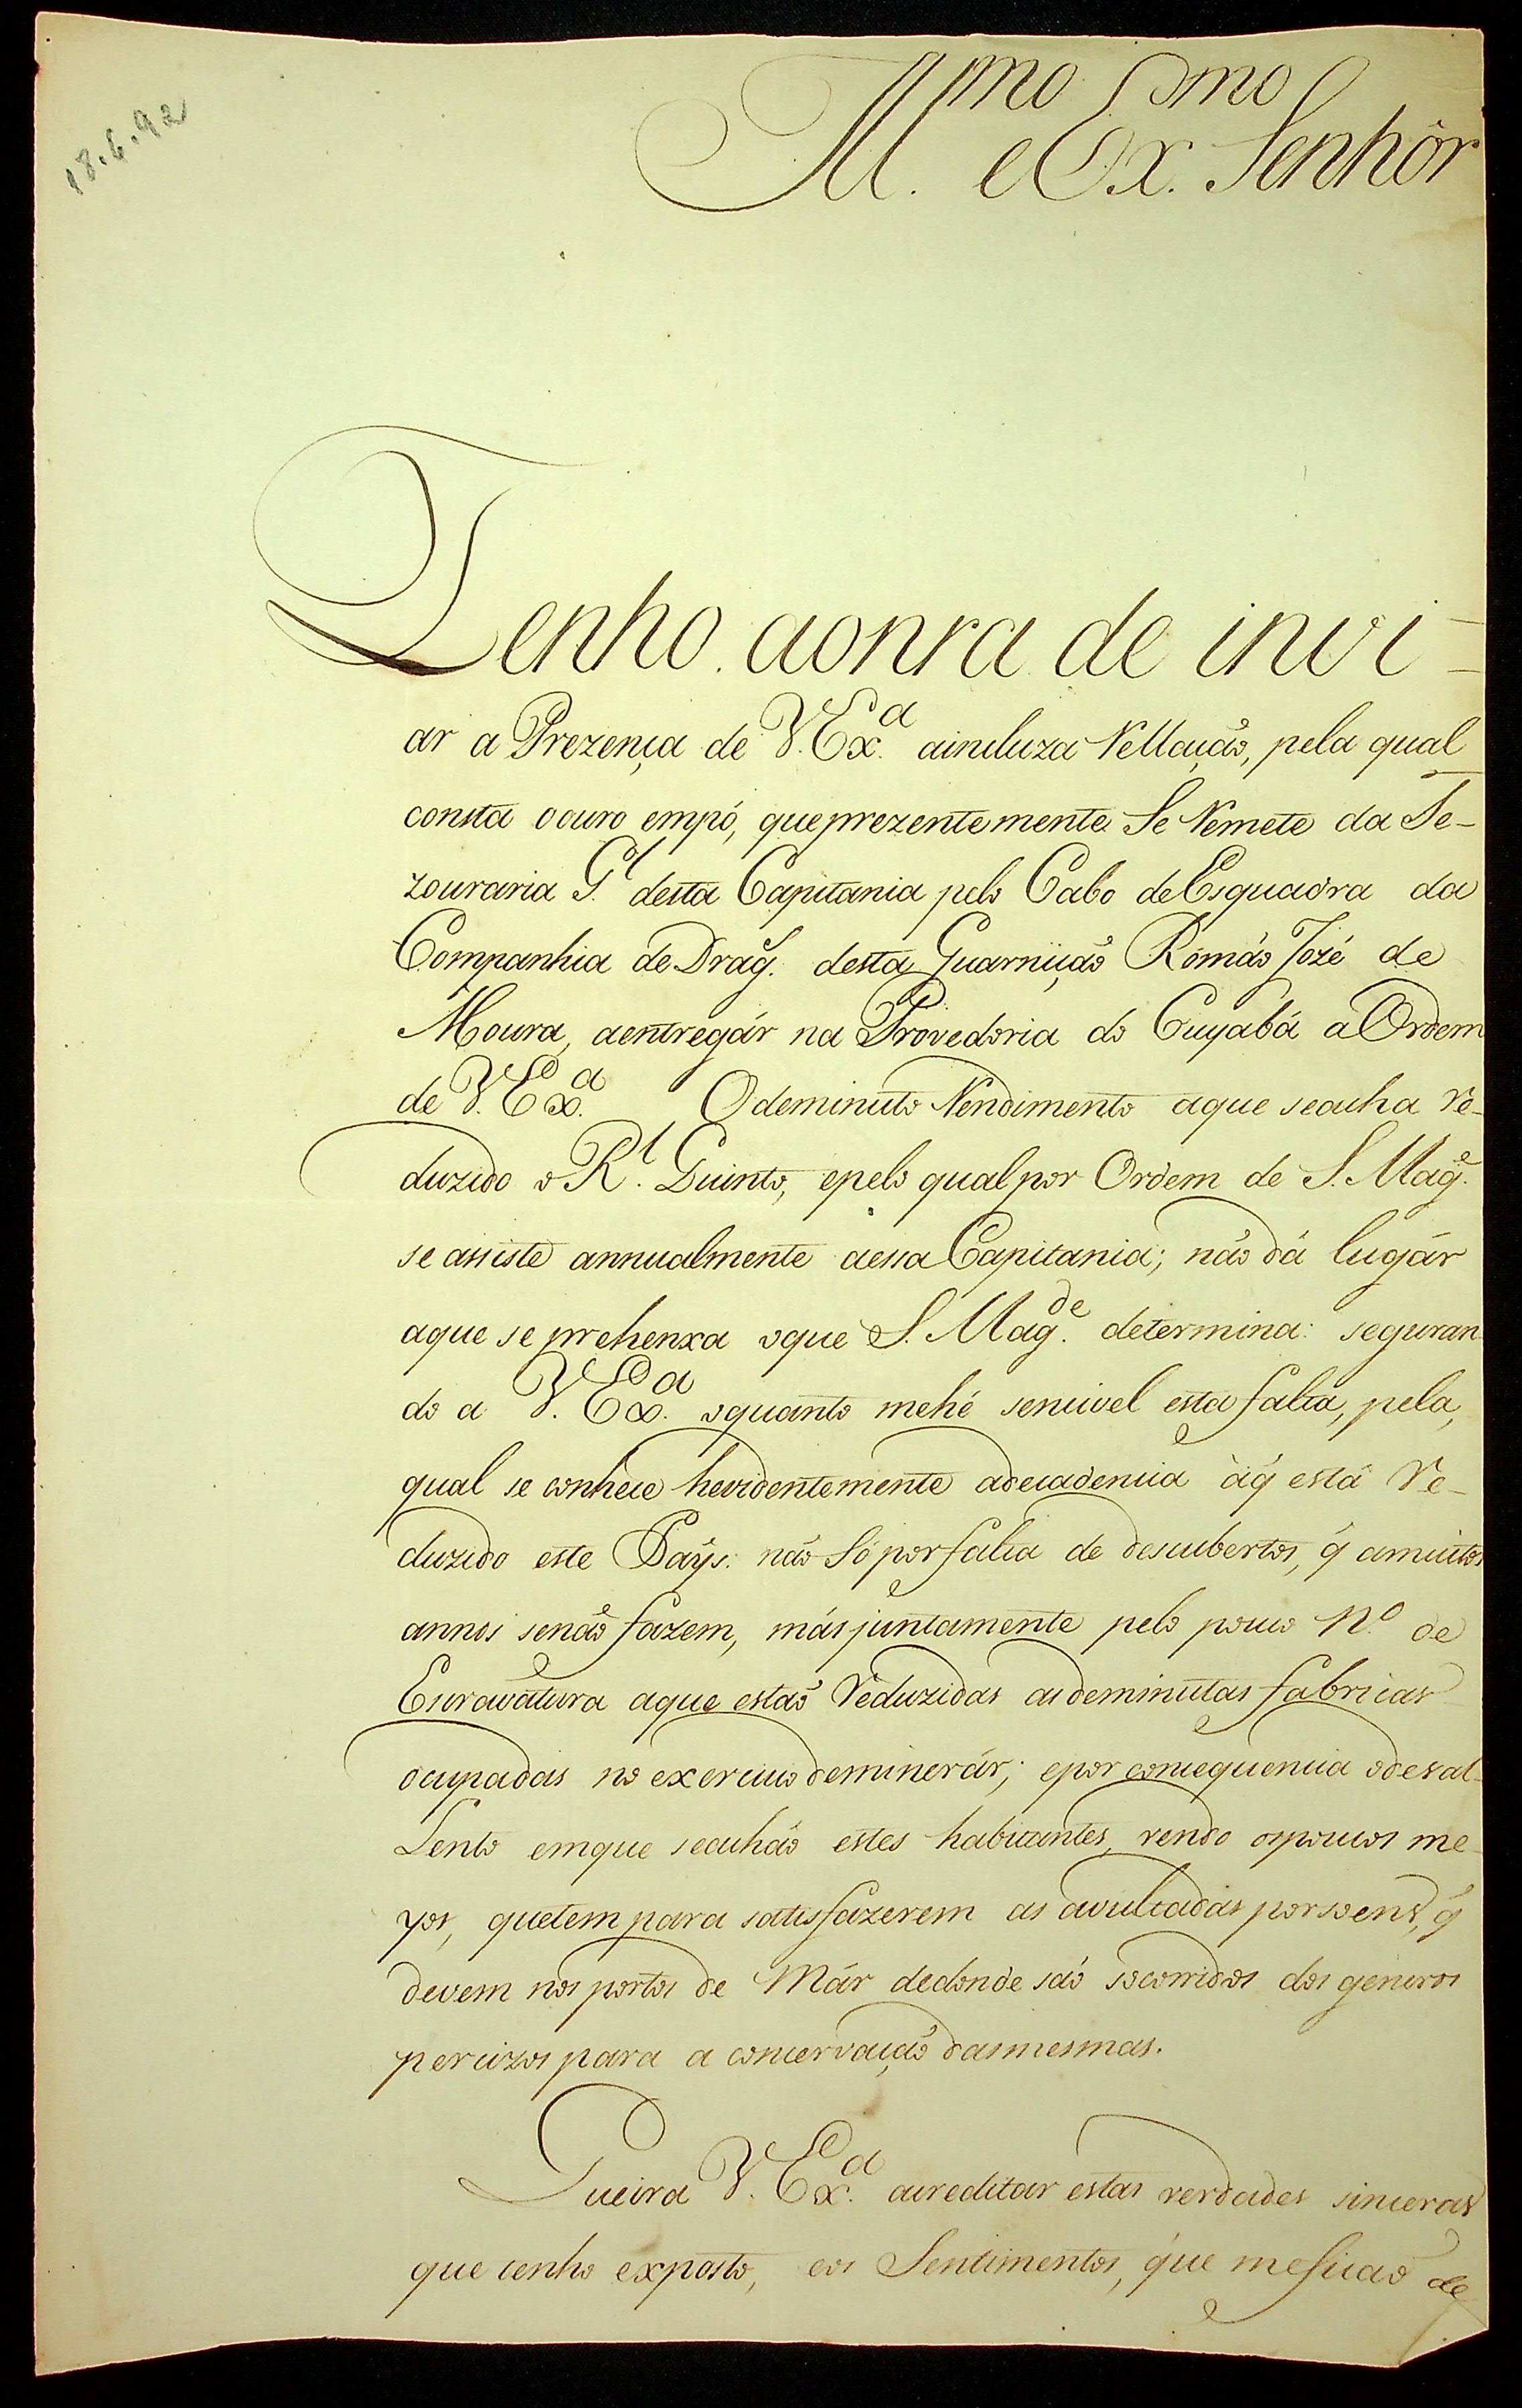 18.6.92
Ill.mo e Ex.mo Senhôr
Tenho aonra de invi-
ar a Prezença de V. Ex.a aincluza Rellação, pela qual
consta oouro empó, queprezentemente Se Remete da Te-
zouraria G.l desta Capitania pelo Cabo deEsquadra da
Companhia deDrag.s desta Guarnição Romão Jozé de
Moura, aentregár na Provedoria do Cuyabá a Ordem
de V. Ex.a Odeminuto Rendimento aque seacha re-
duzido o R.l Quinto, epelo qual por Ordem de S. Mag.e
se assiste annualmente aessa Capitania; não dá lugár
aque se prehenxa oque S. Mag.de determina: seguran
do a V. Ex.a oquanto mehé sencivel esta falta, pela,
qual se conhece hevidentemente adecadencia áq̃ está re-
duzido este Paÿs: não Só por falta de descubertos, q̃ amuitos
annos senão fazem, más juntamente pelo pouco N.o de
Escravatura aque estão reduzidas asdeminutas fabricas
ocupadas no exercicio deminerár; epor consequencia odesal-
Lento emque seachão estes habitantes, vendo ospoucos me
yos, quetem para satisfazerem as avultadas porsoens, q̃
devem nos portos de Már dedonde são socorridos dos generos
percizos para a concervação dasmesmas.
Queira V. Ex.a acreditar estas verdades sinceras
que tenho exposto, eos Sentimentos, que meficão de